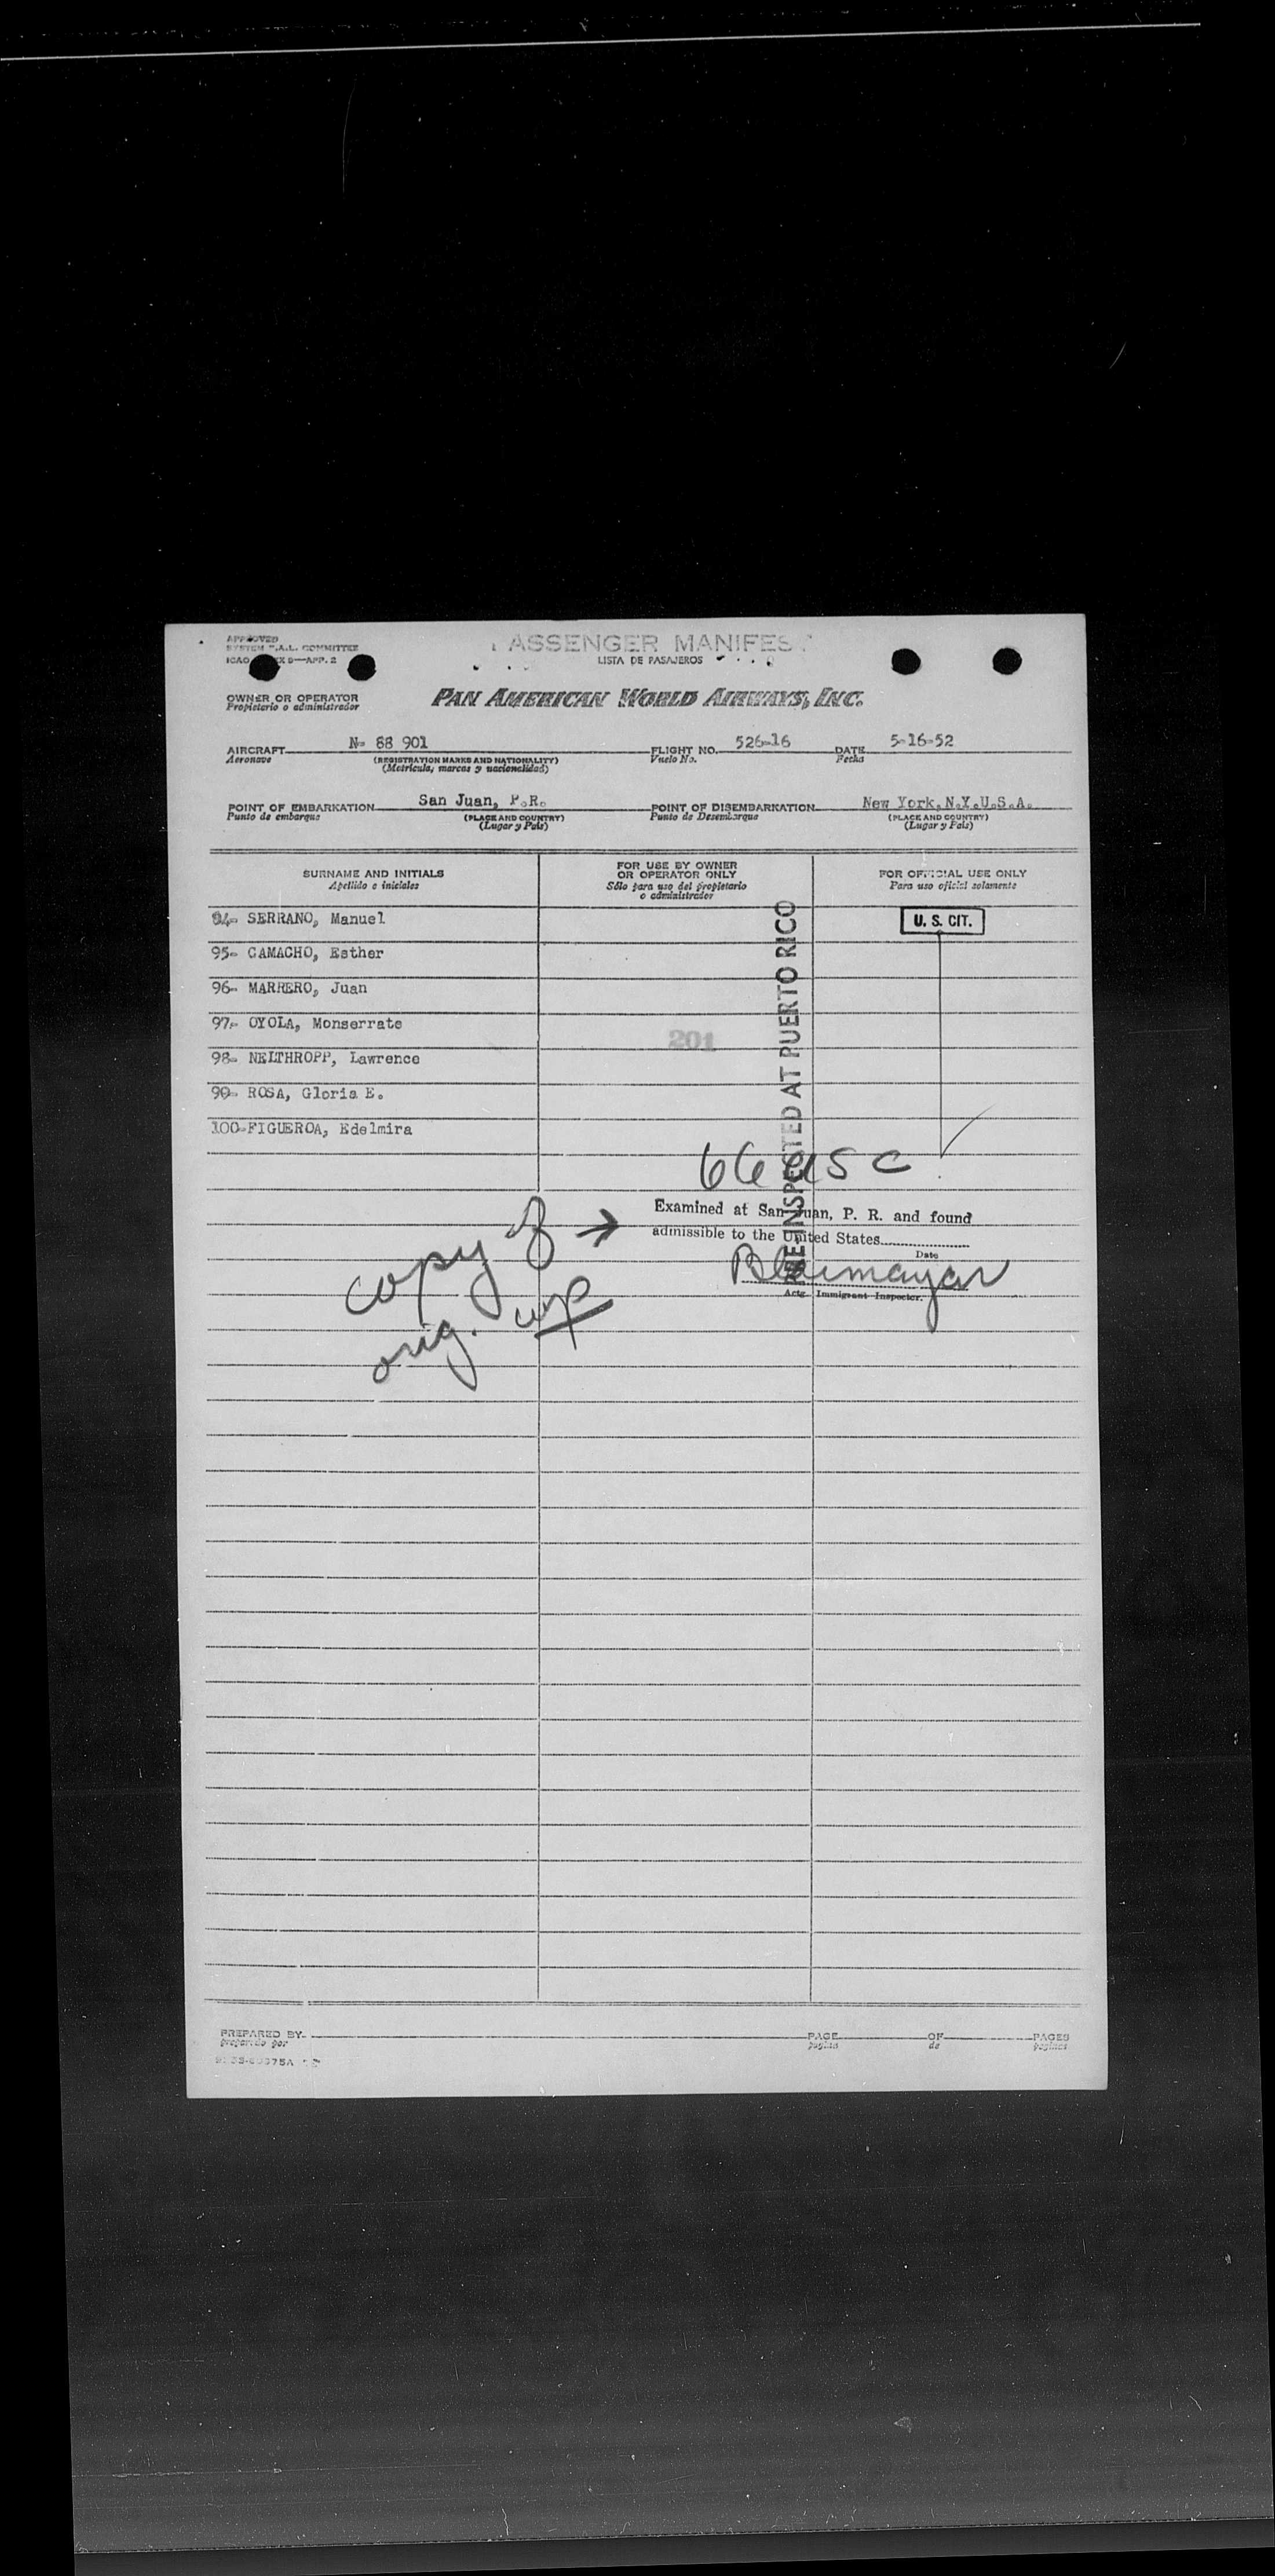 APPROVED
SYSTEM F.A.L. COMMITTEE
ICAO X 9—APP. 2
PASSENGER MANIFEST
LISTA DE PASAJEROS
OWNER OR OPERATOR
Propietario o administrador
PAN AMERICAN WORLD AIRWAYS, INC.
AIRCRAFT N- 88 901 FLIGHT NO. 526-16 DATE 5-16-52
Aeronave (REGISTRATION MARKS AND NATIONALITY) Vuelo No. Fecha
(Matrícula, marcas y nacionalidad)
POINT OF EMBARKATION San Juan, P.R. POINT OF DISEMBARKATION New York,N.Y.U.S.A.
Punto de embarque (PLACE AND COUNTRY) Punto de Desembarque (PLACE AND COUNTRY)
(Lugar y País) (Lugar y País)
SURNAME AND INITIALS FOR USE BY OWNER OR OPERATOR ONLY FOR OFFICIAL USE ONLY
Apellido e iniciales Sólo para uso del propietario o administrador Para uso oficial solamente
94- SERRANO, Manuel U. S. CIT.
95- CAMACHO, Esther
96- MARRERO, Juan
97- OYOLA, Monserrate
201
98- NELTHROPP, Lawrence
99- ROSA, Gloria E.
100-FIGUEROA, Edelmira
PRE-INSPECTED AT PUERTO RICO
66 USC
Examined at San Juan, P. R. and found
admissible to the United States
Date
Actg. Immigrant Inspector.
copy of →
orig.
PREPARED BY PAGE OF PAGES
preparado por página de páginas